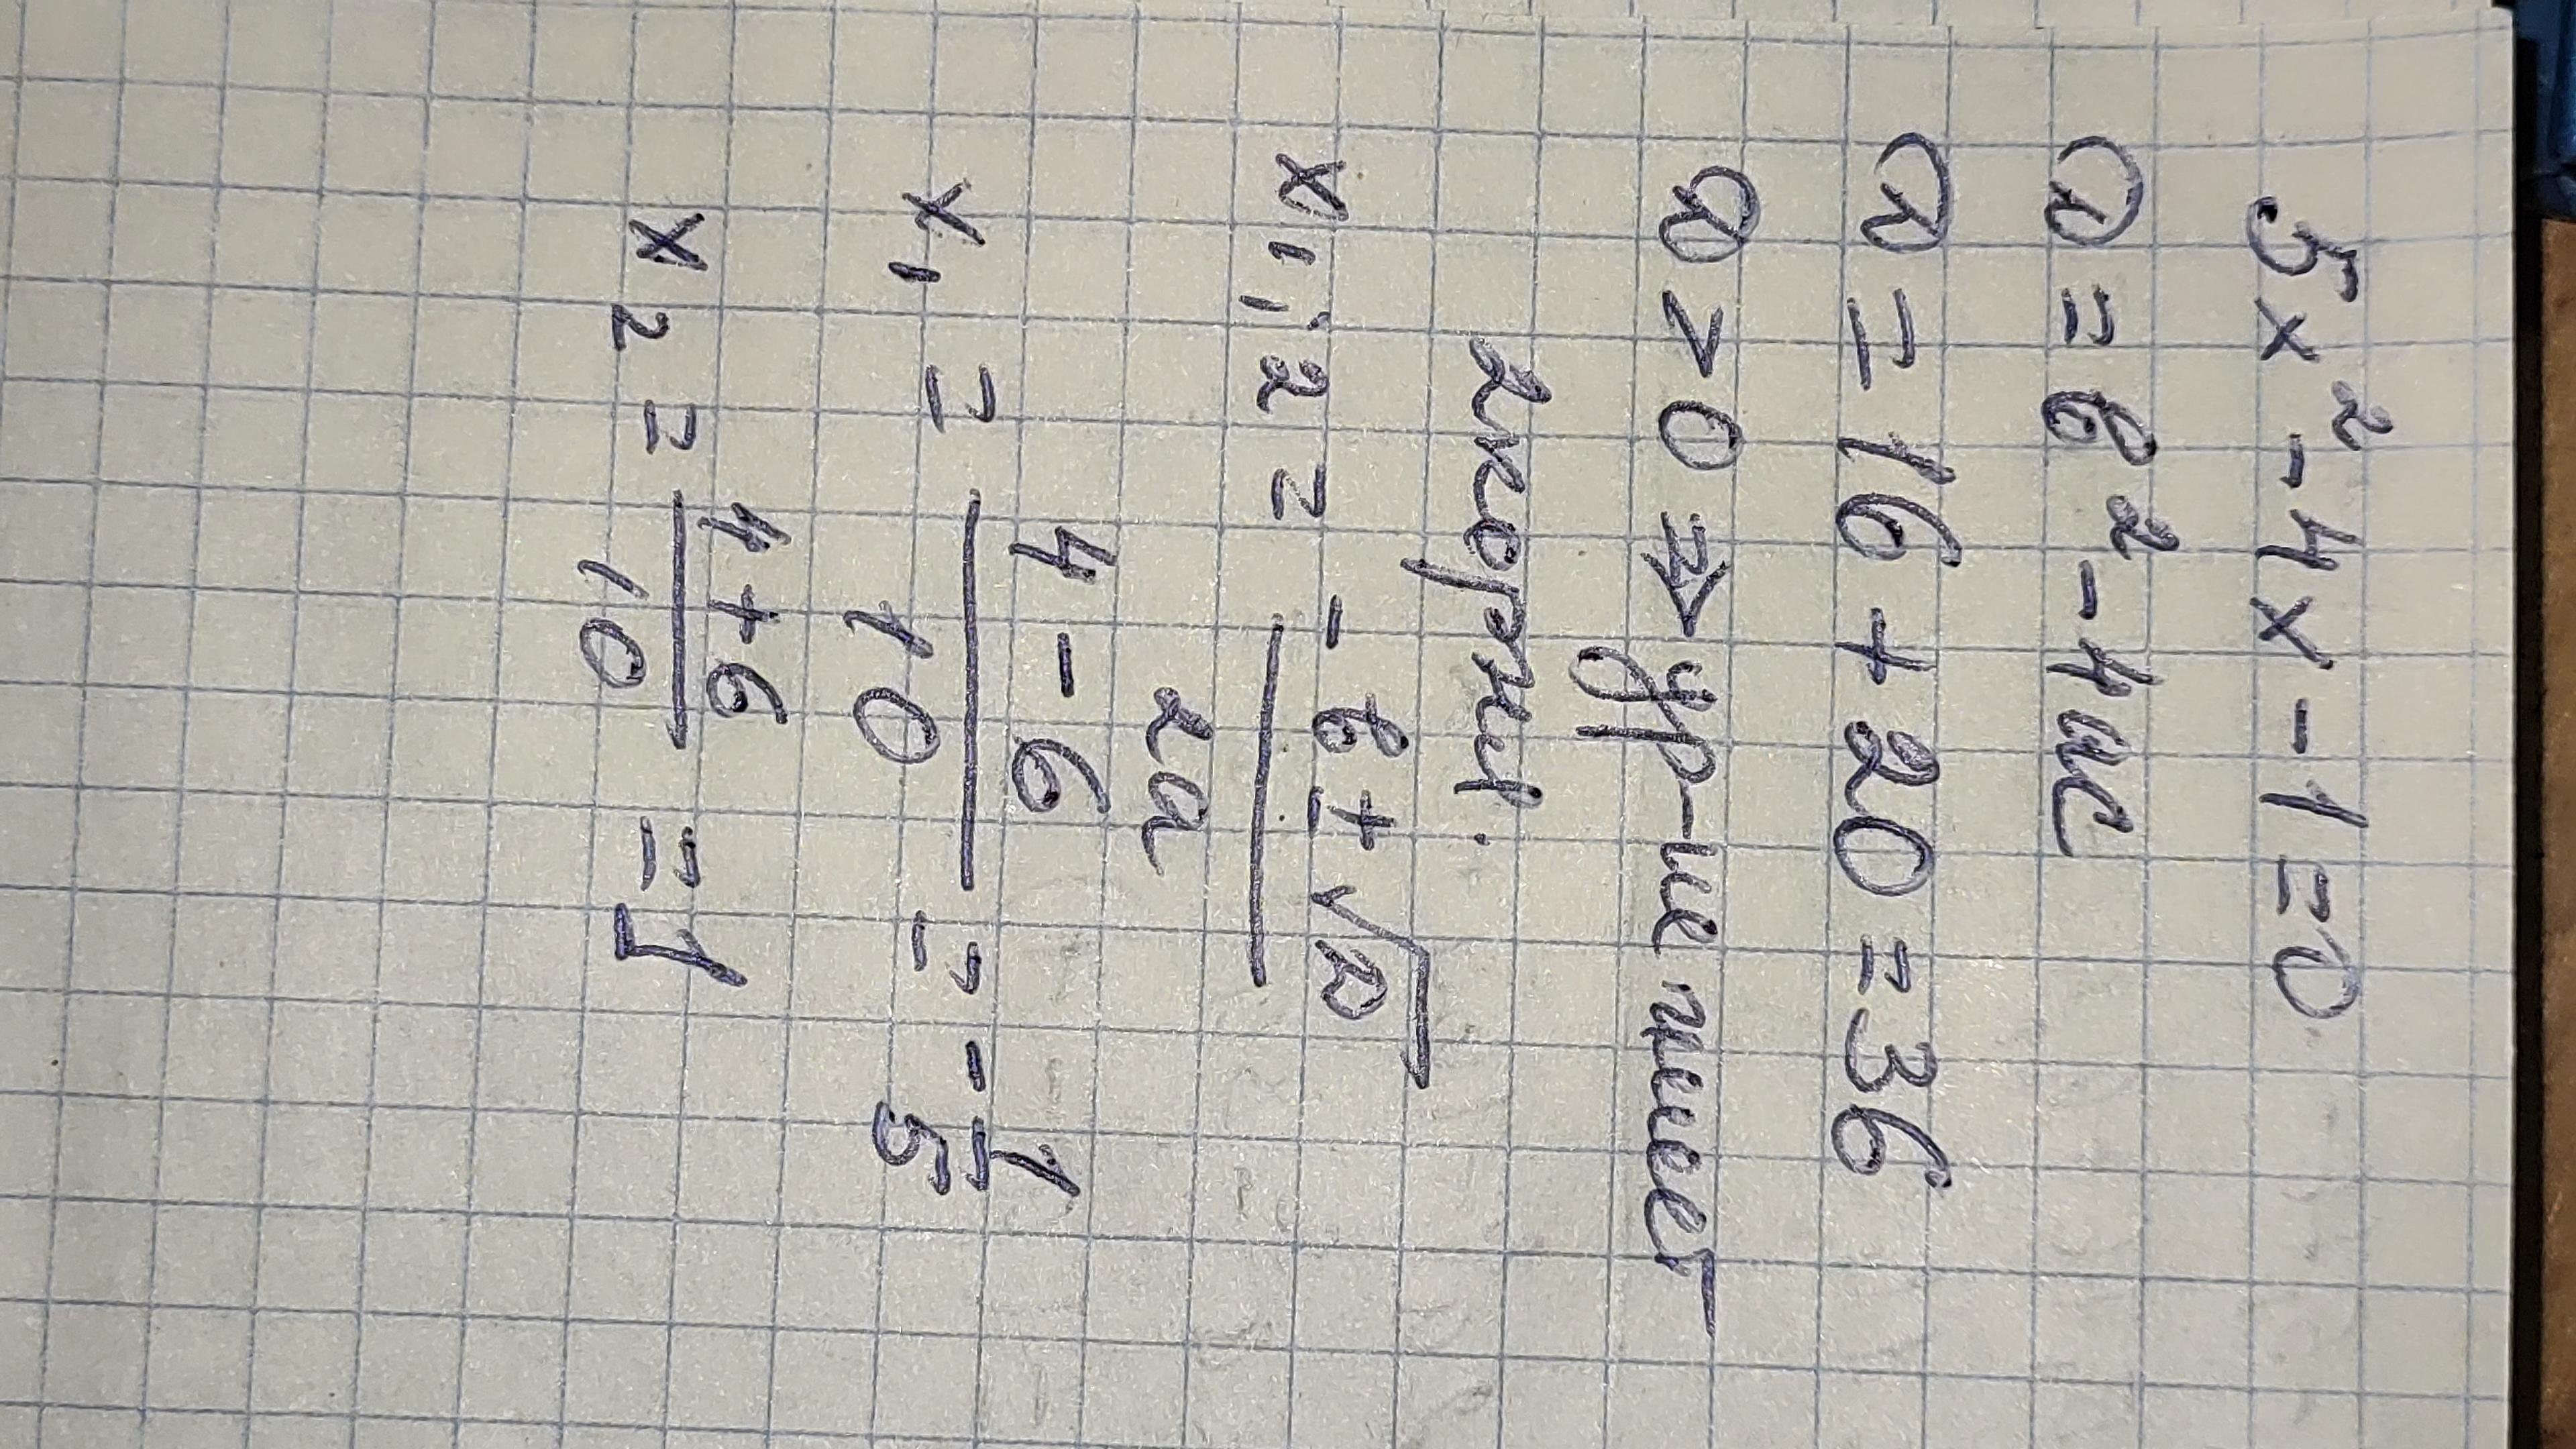 5x² - 4x - 1 = 0
D = b² - 4ac
D = 16 + 20 = 36
D > 0 ⇒ ур-ие имеет
2 корни.
x₁,₂ = (-b ± √D) / 2a
x₁ = (4 - 6) / 10 = -1/5
x₂ = (4 + 6) / 10 = 1